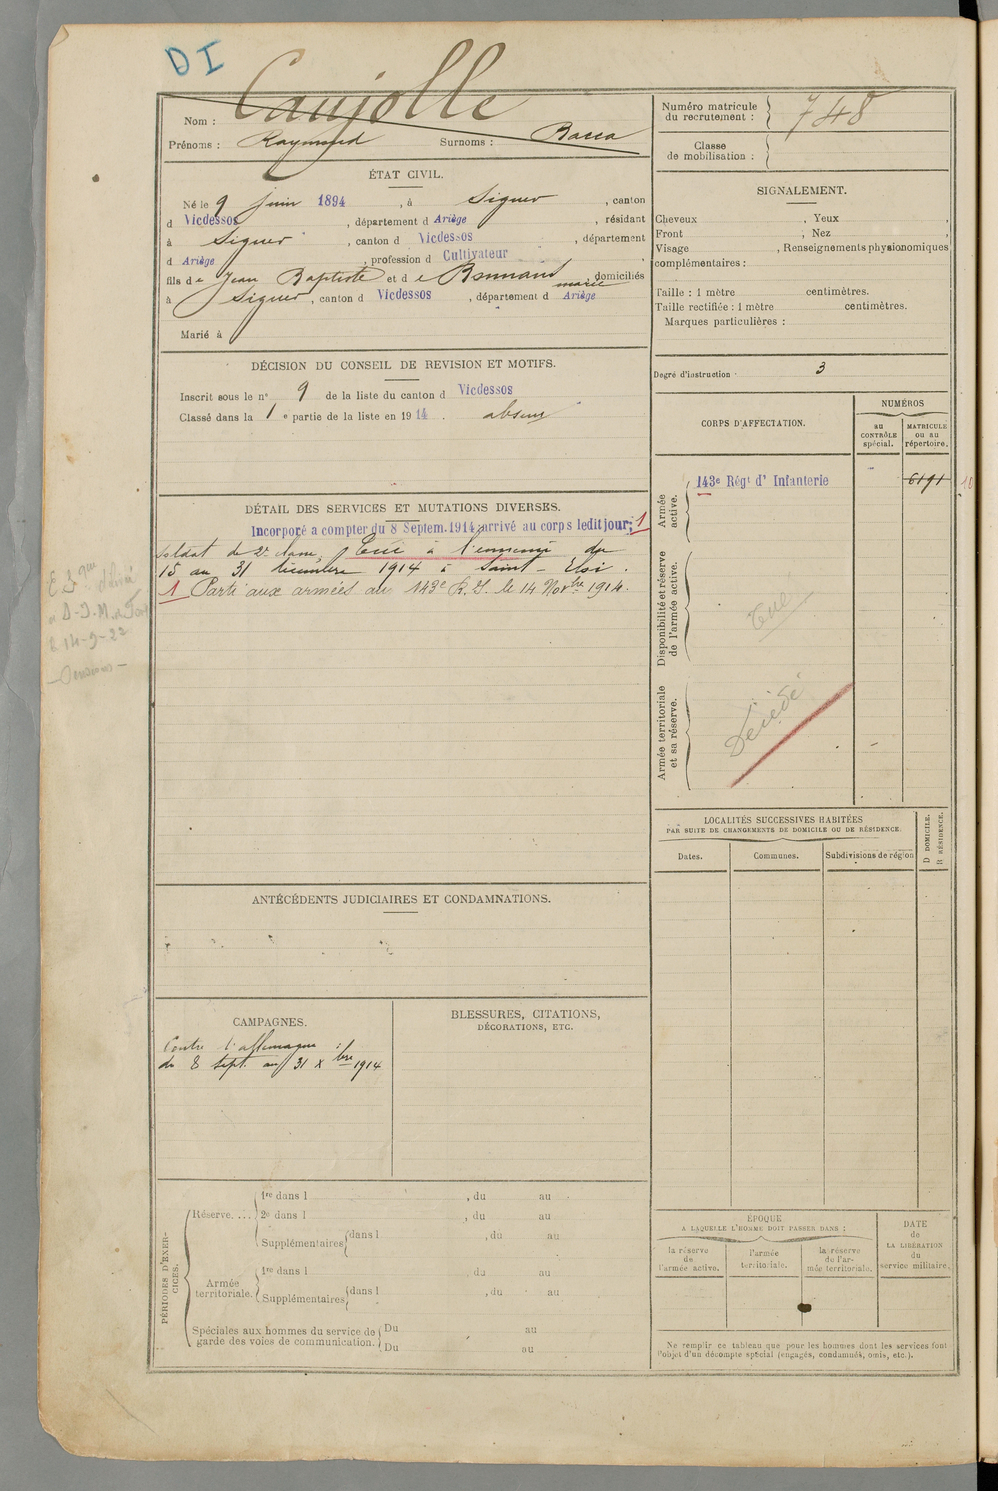 DI
Nom : Caujolle
Prénoms : Raymond Surnoms : Bacca
ÉTAT CIVIL.
Né le 9 juin 1894, à Siguer, canton
d Vicdessos, département d Ariège, résidant
à Siguer, canton d Vicdessos, département
d Ariège, profession d Cultivateur
fils de Jean Baptiste et d e marie, domiciliés
à Siguer, canton d Vicdessos, département d Ariège
Marié à
DÉCISION DU CONSEIL DE REVISION ET MOTIFS.
Inscrit sous le n° 9 de la liste du canton d Vicdessos
Classé dans la 1 e partie de la liste en 1914. absent
DÉTAIL DES SERVICES ET MUTATIONS DIVERSES.
Incorporé a compter du 8 Septem. 1914, arrivé au corps ledit jour; 1
soldat de 2e classe, Tué à l'ennemi du
15 au 31 décembre 1914 à Saint-Eloi.
1 Parti aux armées au 143e R.I. le 14 Novbre 1914.
14-9-22
ANTÉCÉDENTS JUDICIAIRES ET CONDAMNATIONS.
CAMPAGNES.
Contre l'allemagne :
du 8 sept. au 31 Xbre 1914
BLESSURES, CITATIONS,
DÉCORATIONS, ETC.
PÉRIODES D'EXERCICES.
Réserve.... 1re dans l , du au
2e dans l , du au
Supplémentaires dans l , du au
Armée territoriale. 1re dans l , du au
Supplémentaires dans l , du au
Spéciales aux hommes du service de garde des voies de communication. Du au
Du au
Numéro matricule
du recrutement : 748
Classe
de mobilisation :
SIGNALEMENT.
Cheveux , Yeux ,
Front ; Nez ,
Visage , Renseignements physionomiques
complémentaires :
Taille : 1 mètre centimètres.
Taille rectifiée : 1 mètre centimètres.
Marques particulières :
Degré d'instruction 3
CORPS D'AFFECTATION.
NUMÉROS
au CONTRÔLE spécial.
MATRICULE ou au répertoire.
Armée active.
143e Régt d' Infanterie 6191 10
Disponibilité et réserve de l'armée active.
Tué
Armée territoriale et sa réserve.
Décédé
LOCALITÉS SUCCESSIVES HABITÉES
PAR SUITE DE CHANGEMENTS DE DOMICILE OU DE RÉSIDENCE.
D DOMICILE.
R RÉSIDENCE.
Dates. Communes. Subdivisions de région
ÉPOQUE
A LAQUELLE L'HOMME DOIT PASSER DANS :
la réserve de l'armée active.
l'armée territoriale.
la réserve de l'armée territoriale.
DATE
de
LA LIBÉRATION
du
service militaire.
Ne remplir ce tableau que pour les hommes dont les services font
l'objet d'un décompte spécial (engagés, condamnés, omis, etc.).